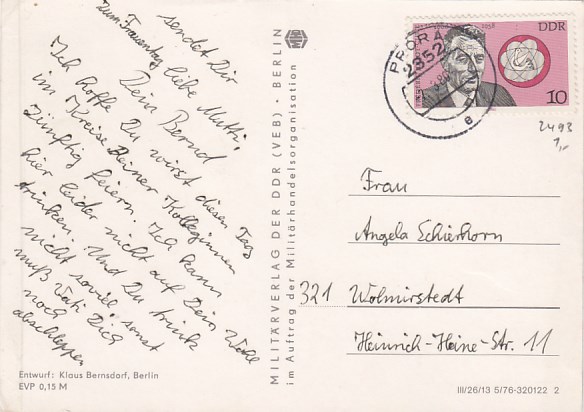 Zum Frauentag
sendet Dir
liebe Mutti,
Dein Bernd
Ich hoffe Du wirst diesen Tag
im Kreise Deiner Kolleginnen
zünftig feiern. Ich kann
hier leider nicht auf Dein Wohl
trinken. Und Du trink
nicht soviel sonst
muß Vati Dich
noch
abschleppen
Entwurf: Klaus Bernsdorf, Berlin
EVP 0,15 M
MILITÄRVERLAG DER DDR (VEB) · BERLIN
im Auftrag der Militärhandelsorganisation
1958
DDR
10
PRORA
2352
e
2493
1,-
Frau
Angela Schierhorn
321 Wolmirstedt
Heinrich-Heine-Str. 11
III/26/13 5/76-320122 2